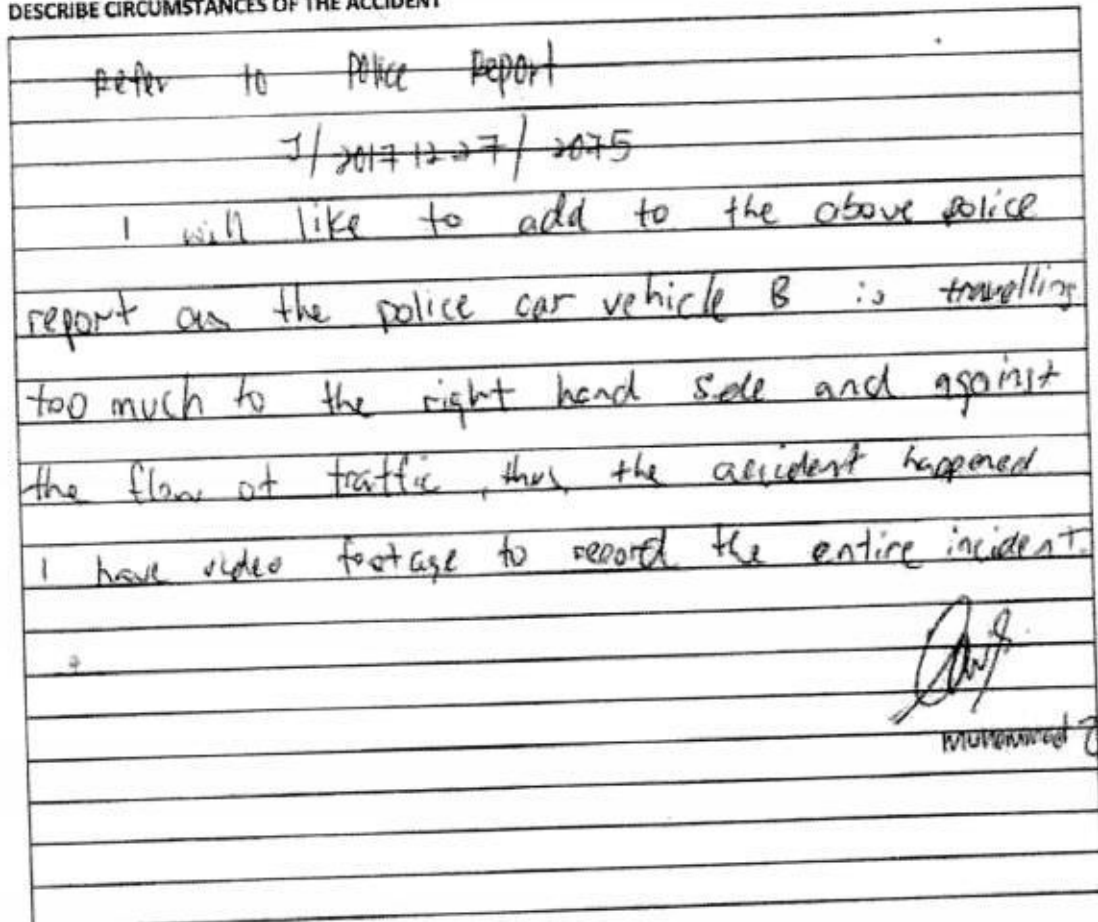 DESCRIBE CIRCUMSTANCES OF THE ACCIDENT
Refer to Police Report
J/20171227/2075
I will like to add to the above police
report as the police car vehicle B is travelling
too much to the right hand side and against
the flow of traffic, thus the accident happened
I have video footage to record the entire incident.
Muhammad